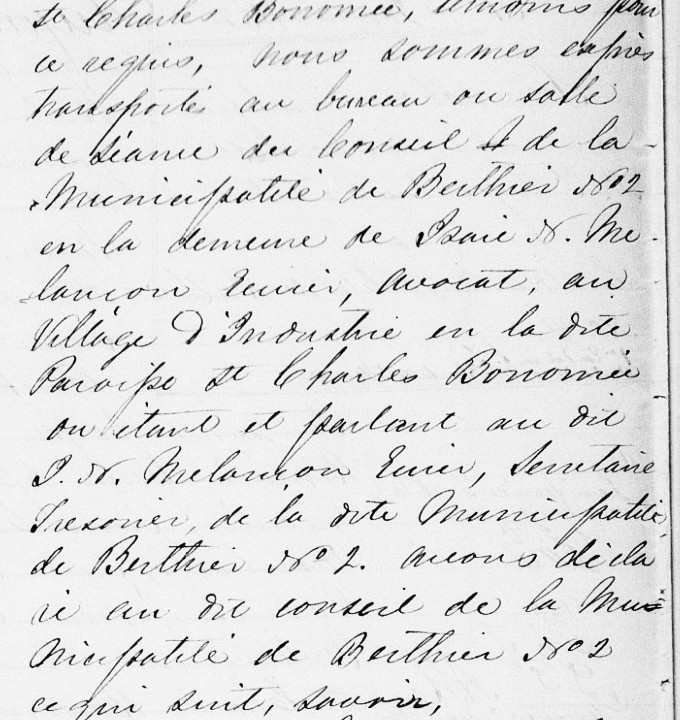 St Charles Bonomée, témoins pour
ce requis, nous sommes exprès
transporté au bureau ou salle
de séance du Conseil de la
Municipalité de Berthier No 2
en la demeure de Isaie N. Me-
lançon Ecuier, avocat, au
Village d'Industrie en la dite
Paroisse St Charles Bonomée
ou étant et parlant au dit
I. N. Melançon Ecuier, Secretaire
Tresorier, de la dite Municipalité
de Berthier No 2. avons décla
ré au dit conseil de la Mu=
nicipalité de Berthier No 2
ce qui suit, savoir,